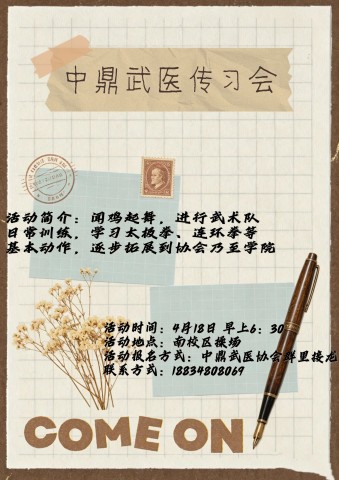 中鼎武医传习会
活动简介：闻鸡起舞，进行武术队
日常训练，学习太极拳、连环拳等
基本动作，逐步拓展到协会乃至学院
活动时间：4月18日 早上6：30
活动地点：南校区操场
活动报名方式：中鼎武医协会群里接龙
联系方式：18834808069
COME ON